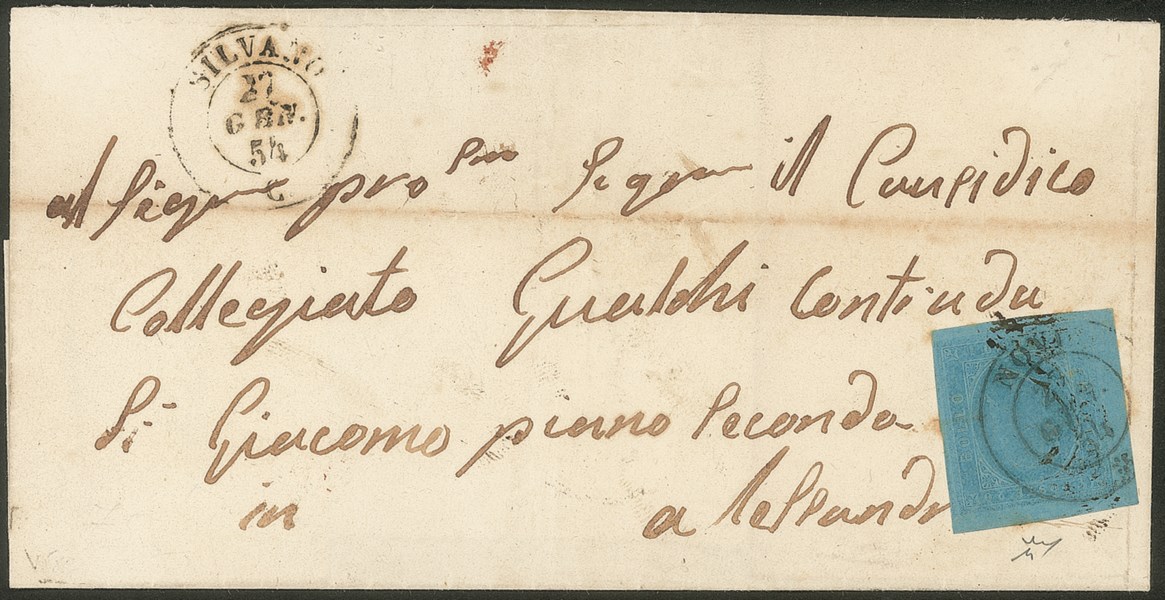 SILVANO
27
GEN.
54
al Sigre pro Sigre il Causidico
Collegiato Gualchi Contrada
Sn Giacomo piano Secondo
in alessandr
NOVI